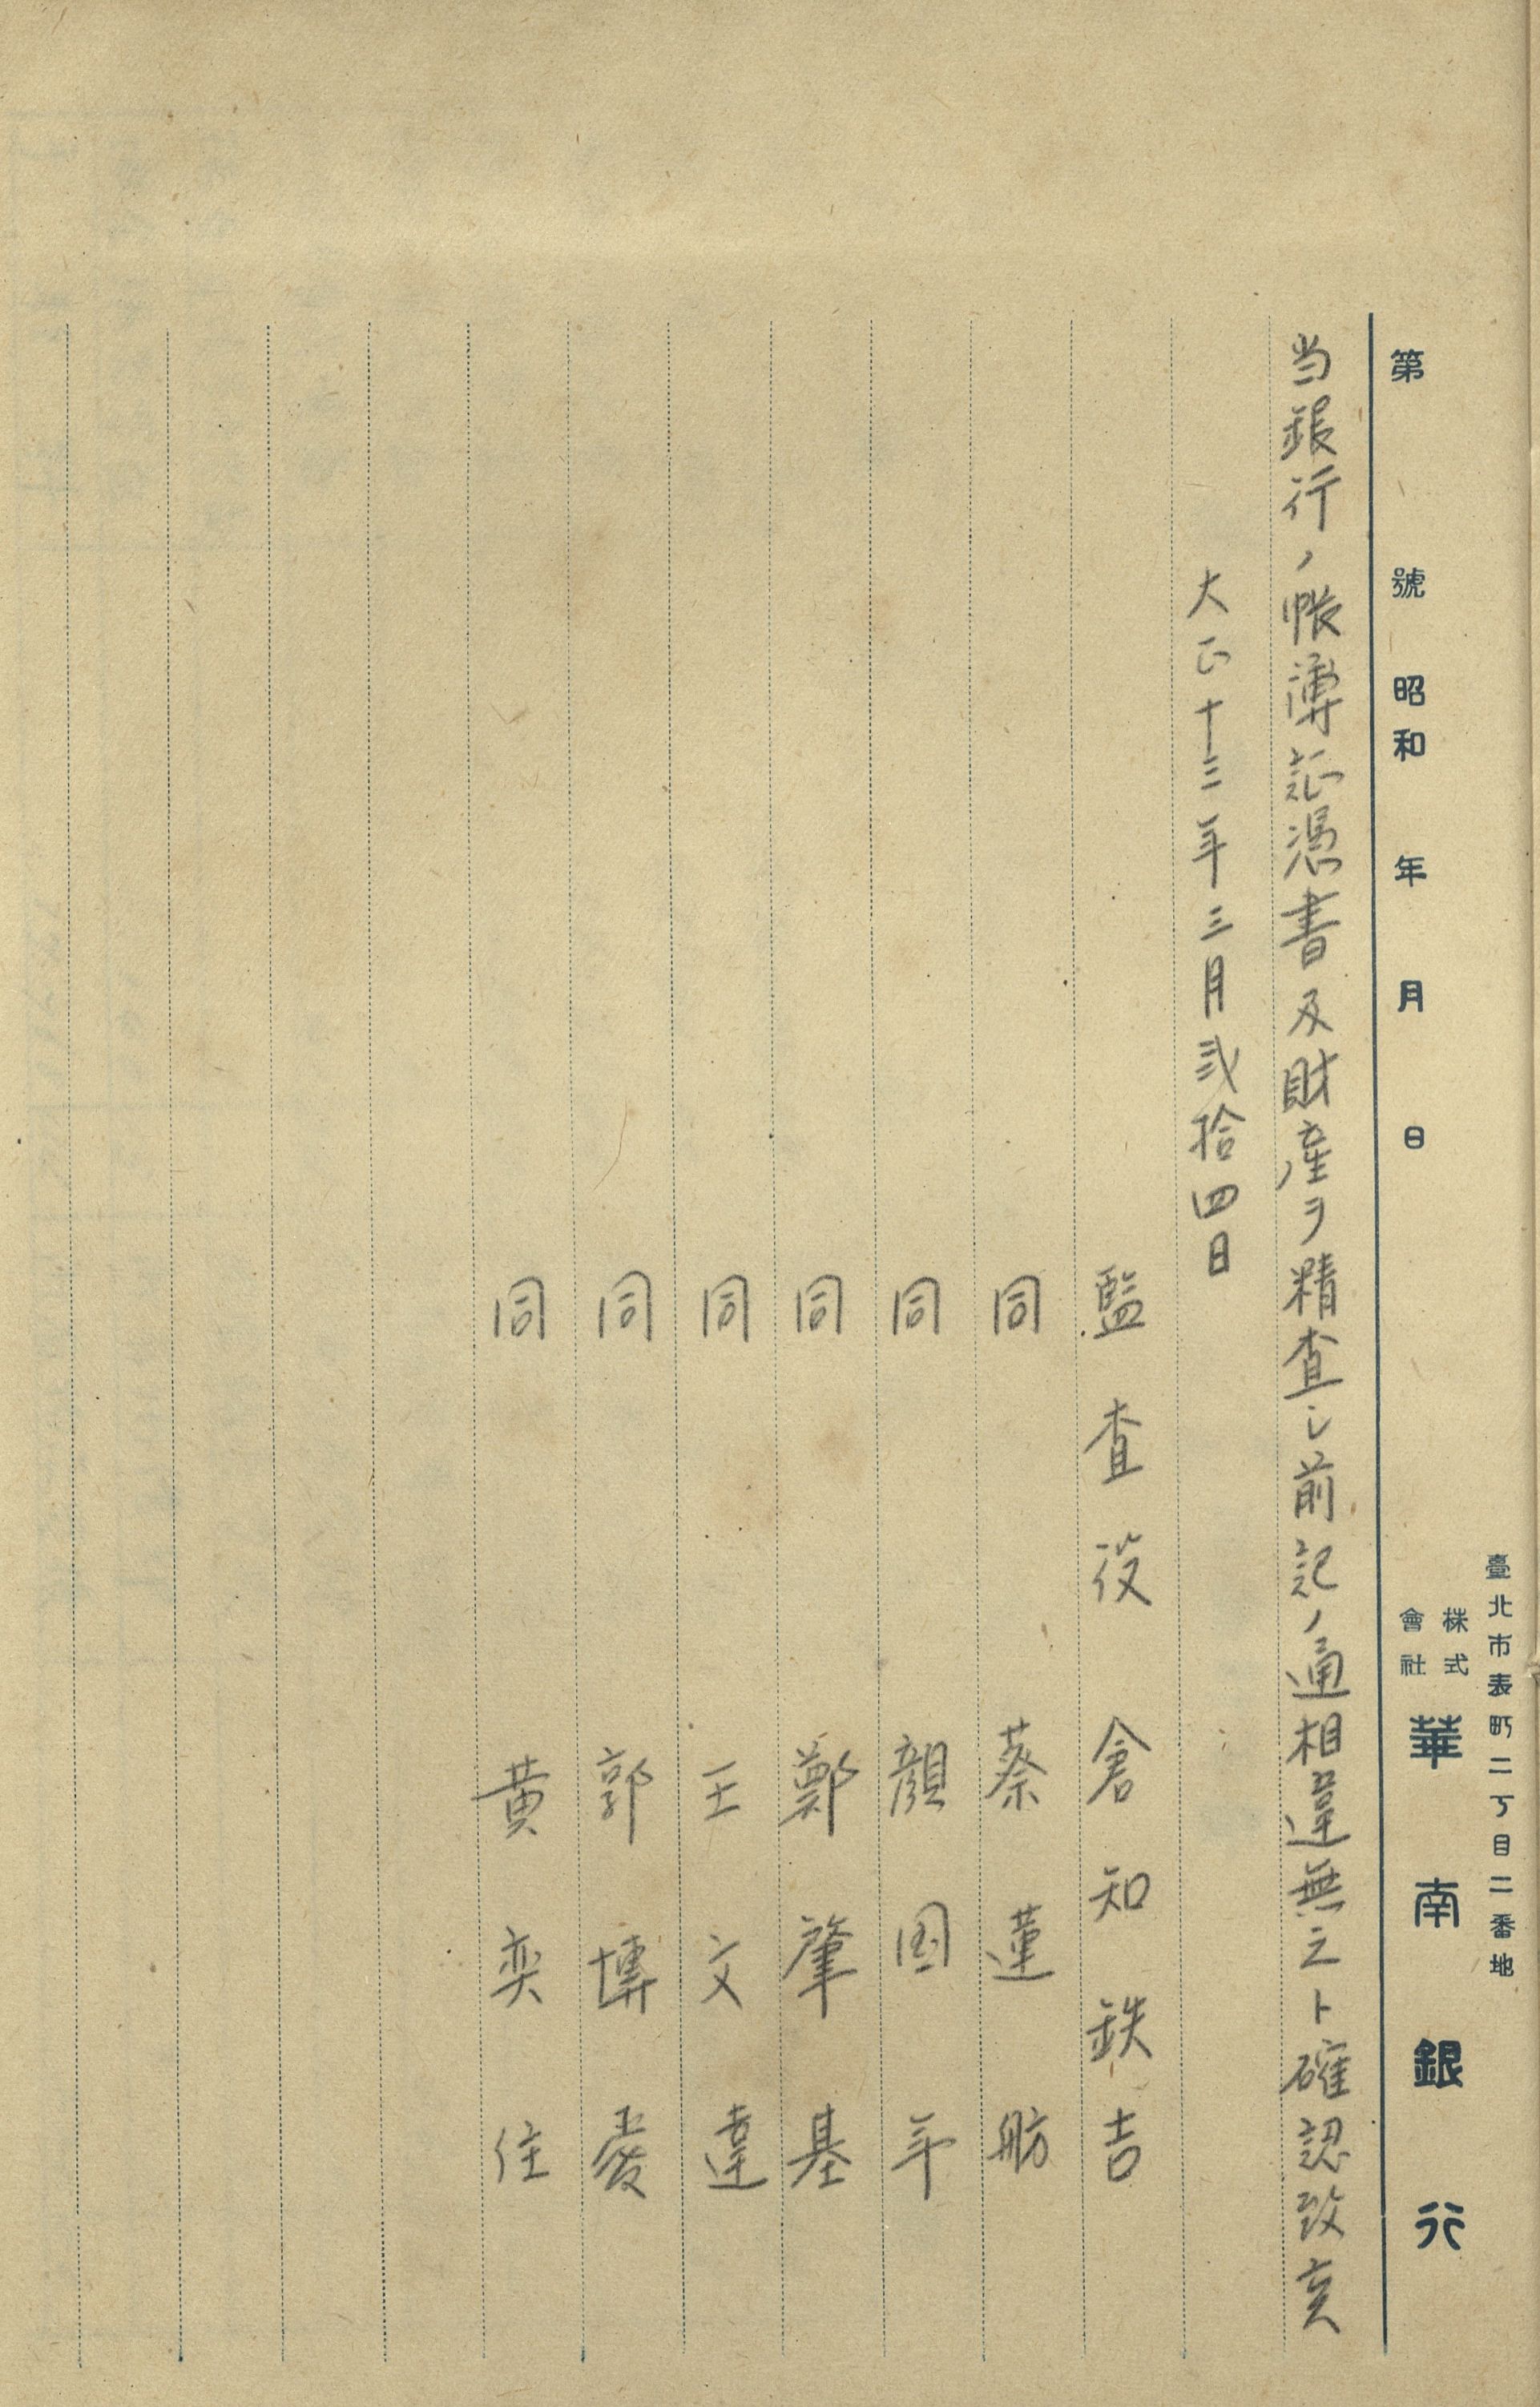 臺北市表町二丁目二番地
株式會社 華南銀行
第 號 昭和 年 月 日
当銀行ノ帳簿証憑書及財産ヲ精査シ前記ノ通相違無之ト確認致
大正十三年三月弐拾四日
監査役 倉知鉄吉
同 蔡蓮舫
同 顔国年
同 鄭肇基
同 王文達
同 郭博
同 黄奕住